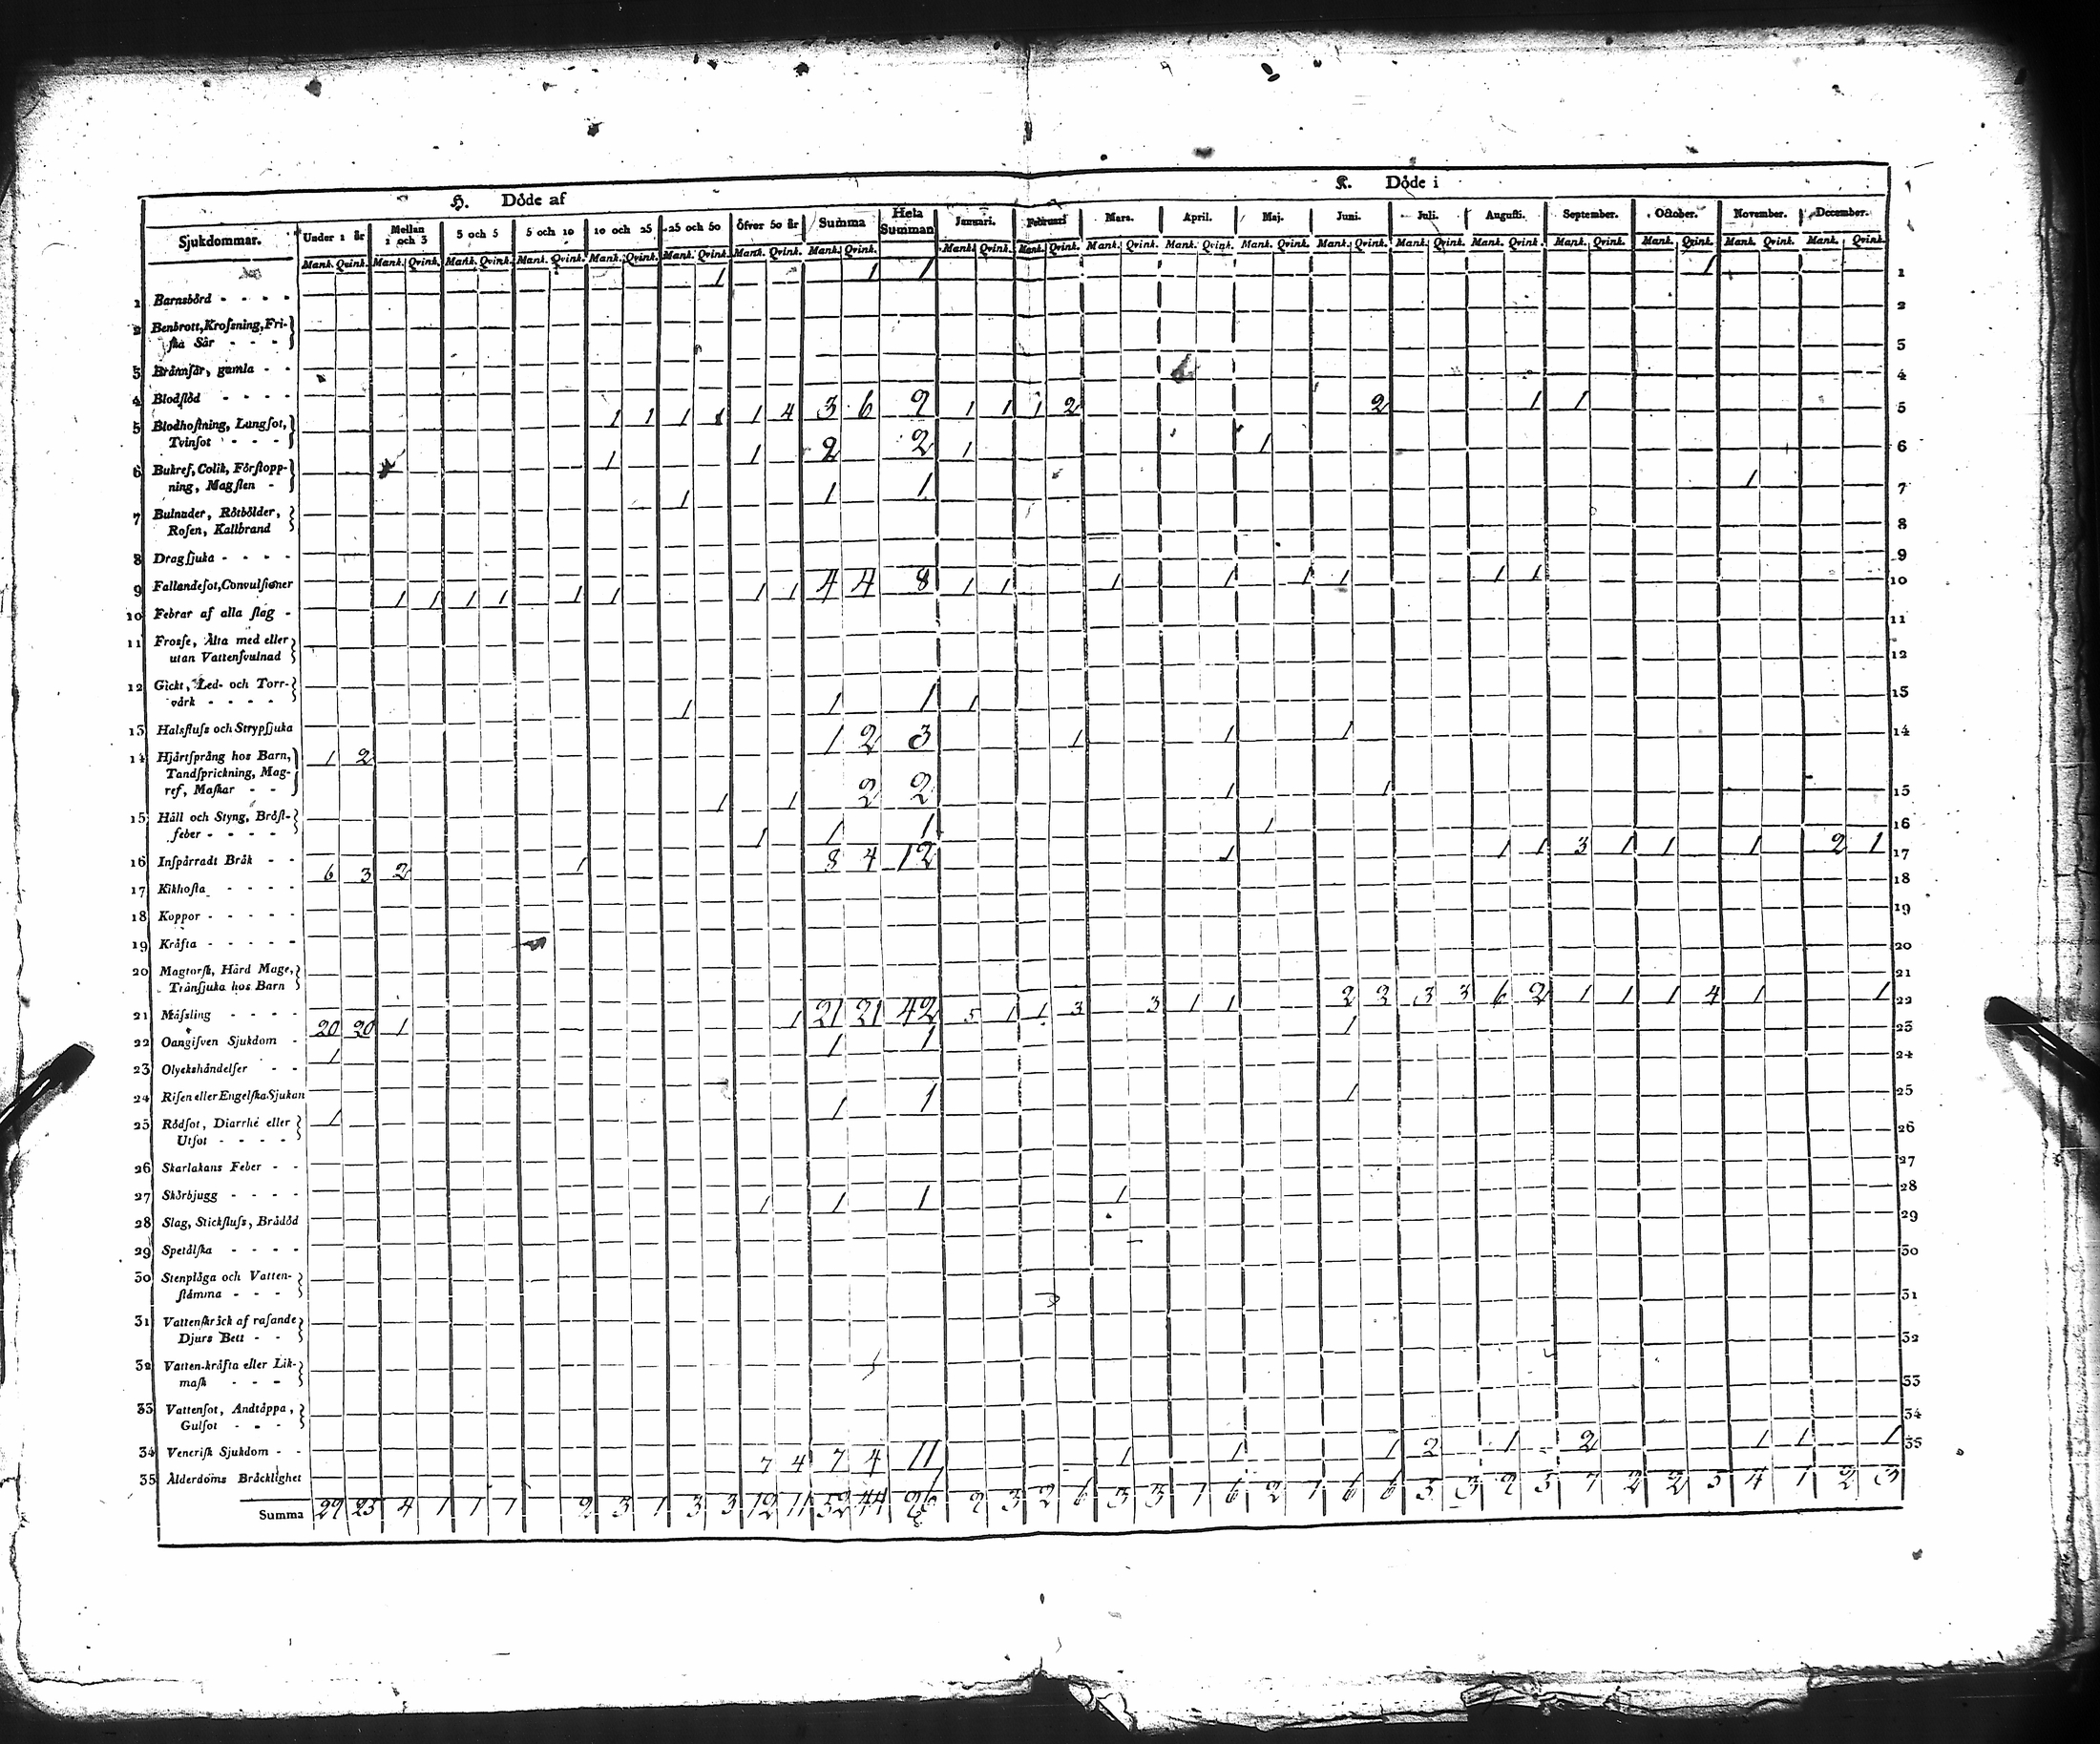 H. Döde af
K. Döde i
Sjukdommar. Under 1 år Mellan 1 och 3 3 och 5 5 och 10 10 och 25 25 och 50 Öfver 50 år Summa Hela Summan Januari. Februari Mars. April. Maj. Juni. Juli. Augusti. September. October. November. December.
Mank. Qvink. Mank. Qvink. Mank. Qvink. Mank. Qvink. Mank. Qvink. Mank. Qvink. Mank. Qvink. Mank. Qvink. Mank. Qvink. Mank. Qvink. Mank. Qvink. Mank. Qvink. Mank. Qvink. Mank. Qvink. Mank. Qvink. Mank. Qvink. Mank. Qvink. Mank. Qvink. Mank. Qvink. Mank. Qvink.
1 Barnsbörd - - - - 1 1 1 1 1
2 Benbrott, Krosſning, Fri-
ſka Sår - - - 2
3 Brännſår, gamla - - 3
4 Blodſlöd - - - - 4
5 Blodhoſtning, Lungſot,
Tvinſot - - - 1 1 1 1 1 4 3 6 9 1 1 1 2 2 1 1 5
6 Bukref, Colik, Förſtopp-
ning, Magſten - 1 1 2 2 1 1 6
7 Bulnader, Rötbölder,
Roſen, Kallbrand 1 1 1 1 7
8 Dragſjuka - - - - 8
9 Fallandeſot, Convulſioner 9
10 Febrar af alla ſlag - 1 1 1 1 1 1 1 1 4 4 8 1 1 1 1 1 1 1 1 10
11 Frosſe, Älta med eller
utan Vattenſvulnad 11
12 Gickt, Led- och Torr-
värk - - - - 12
13 Halsfluſs och Strypſjuka 1 1 1 1 13
14 Hjärtſprång hos Barn,
Tandſprickning, Mag-
ref, Maſkar - - 1 2 1 2 3 1 1 1 14
15 Håll och Styng, Bröſt-
feber - - - - 1 1 2 2 1 1 15
16 Inſpärradt Bråk - - 1 1 1 1 16
17 Kikhoſta - - - - 6 3 2 1 8 4 12 1 1 1 3 1 1 1 2 1 17
18 Koppor - - - - - 18
19 Kräfta - - - - - 19
20 Magtorſk, Hård Mage,
Tränſjuka hos Barn 20
21 Mäſsling - - - - 21
22 Oangifven Sjukdom - 20 20 1 1 21 21 42 5 1 1 3 3 1 1 2 2 3 3 6 2 1 1 1 4 1 1 22
23 Olyckshändelſer - - 1 1 1 1 23
24 Riſen eller Engelſka Sjukan 24
25 Rödſot, Diarrhé eller
Utſot - - - - 1 1 1 1 25
26 Skarlakans Feber - - 26
27 Skörbjugg - - - - 27
28 Slag, Stickfluſs, Brådöd 1 1 1 1 28
29 Spetälſka - - - - 29
30 Stenplåga och Vatten-
ſtämma - - - 30
31 Vattenſkräck af raſande
Djurs Bett - - 31
32 Vatten-kräfta eller Lik-
maſk - - - 32
33 Vattenſot, Andtäppa,
Gulſot - - - 33
34 Veneriſk Sjukdom - - 34
35 Ålderdoms Bräcklighet 7 4 7 4 11 1 1 1 2 1 2 1 1 1 35
Summa 29 25 4 1 1 1 2 3 1 3 3 12 11 52 44 96 9 3 2 6 3 3 1 6 2 1 6 6 5 3 9 5 7 2 2 5 4 1 2 3